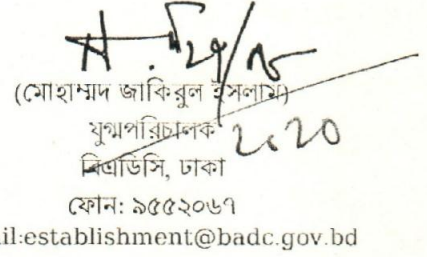 (মোহাম্মদ জাকিরুল ইসলাম)
যুগ্মপরিচালক
বিএডিসি, ঢাকা
ফোন: ৯৫৫২০৬৭
il:establishment@badc.gov.bd